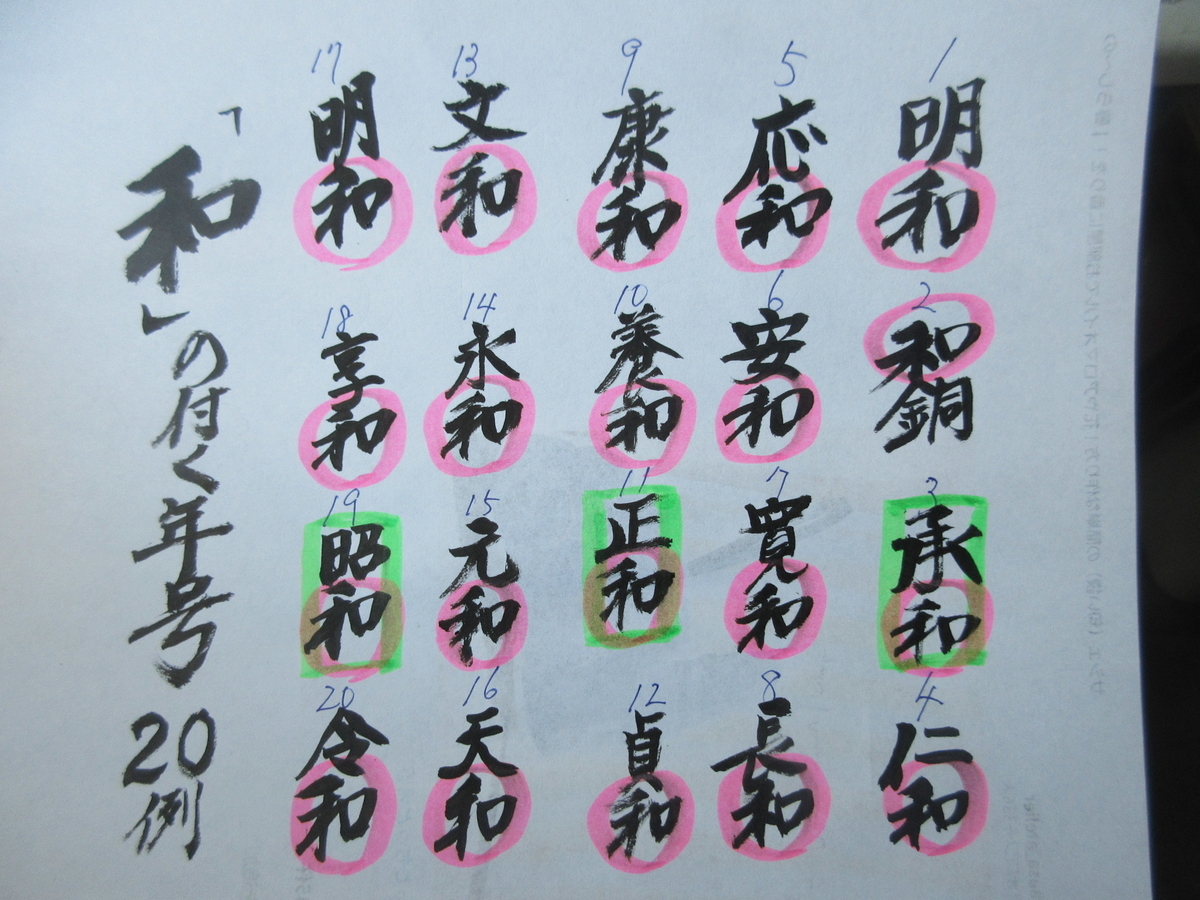 1 明和 2 和銅 3 承和 4 仁和
5 応和 6 安和 7 寛和 8 長和
9 康和 10 養和 11 正和 12 貞和
13 文和 14 永和 15 元和 16 天和
17 明和 18 享和 19 昭和 20 令和
「和」の付く年号 20例